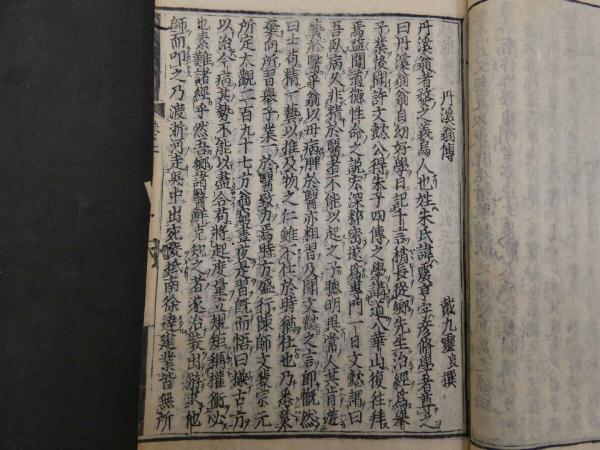 丹溪翁傳
戴九靈良撰
丹溪翁者婺之義烏人也姓朱氏諱震亨字彥脩學者尊之
曰丹溪翁翁自幼好學日記千言稍長從鄉先生治經爲舉
子業後聞許文懿公得朱子四傳之學講道八華山復往拜
焉益聞道德性命之說宏深粹密遂爲專門一日文懿謂曰
吾臥病久非精於醫者不能以起之子聰明異常人其肯遊
藝於醫乎翁以母病脾於醫亦粗習及聞文懿之言即慨然
曰士苟精一藝以推及物之仁雖不仕於時猶仕也乃悉焚
棄向所習舉子業一於醫致力焉時方盛行陳師文裴宗元
所定大觀二百九十七方翁窮晝夜是習既而悟曰操古方
以治今病其勢不能以盡合苟將起度量立規矩稱權衡必
也素難諸經乎然吾鄉諸醫鮮克知之者遂治裝出游求他
師而叩之乃渡浙河走吳中出宛陵抵南徐達建業皆無所